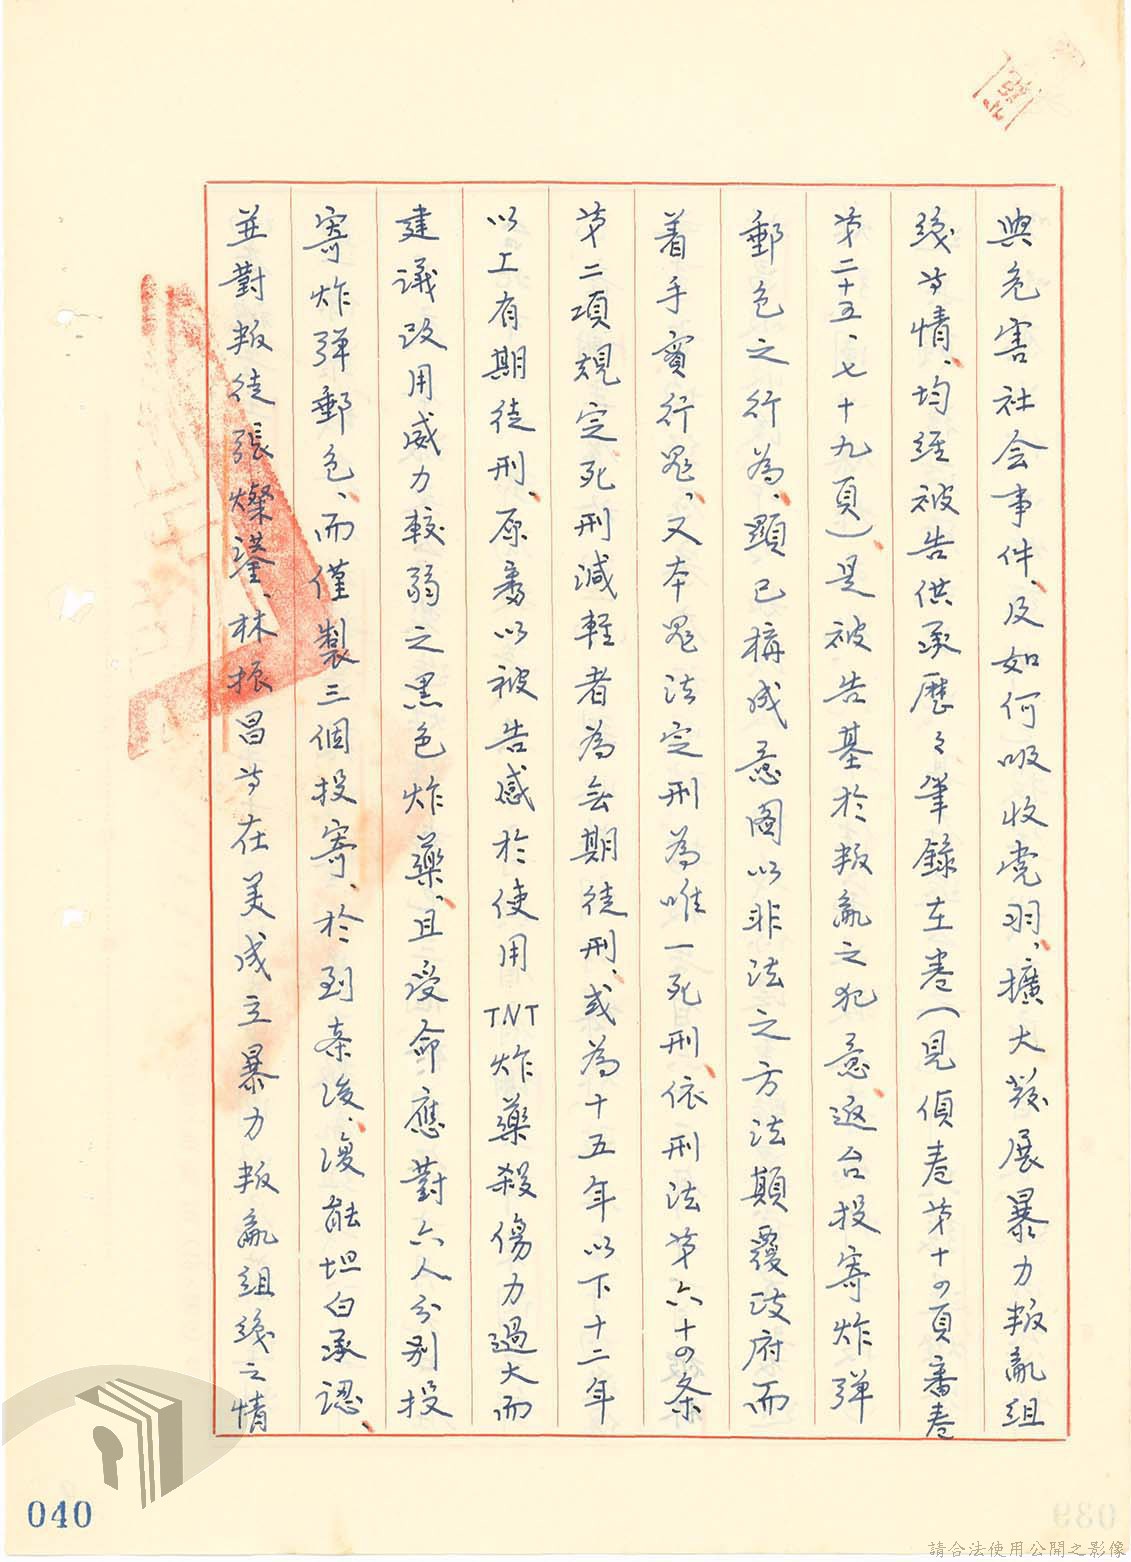 與危害社会事件、及如何吸收党羽、擴大發展暴力叛亂組
織等情、均經被告供承歷々筆錄在卷（見偵卷第十四頁審卷
第二十五、七十九頁）、是被告基於叛亂之犯意返台投寄炸弹
郵包之行為、顯已構成意图以非法之方法顛覆政府而
着手實行罪、又本罪法定刑為唯一死刑、依刑法第六十四条
第二項規定死刑減輕者為無期徒刑、或為十五年以下十二年
以上有期徒刑、原審以被告感於使用TNT炸藥殺傷力過大而
建議改用威力較弱之黑色炸藥、且受命應對六人分别投
寄炸弹郵包、而僅製三個投寄、於到案後、復能坦白承認、
並對叛徒張燦鍙、林振昌等在美成立暴力叛亂組織之情
040
請合法使用公開之影像